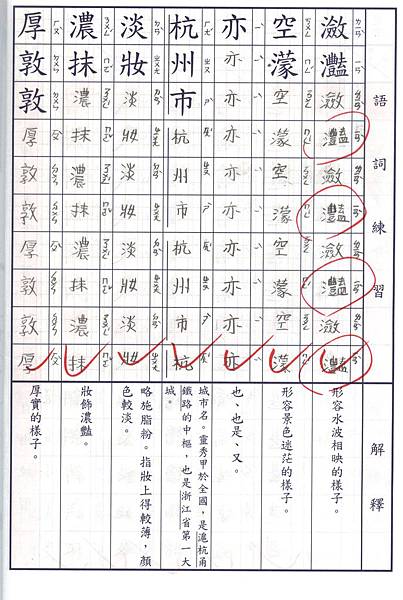 語詞練習
解釋
瀲灩瀲灩瀲灩瀲灩瀲灩
形容水波相映的樣子。
空濛空濛空濛空濛空濛
形容景色迷茫的樣子。
亦亦亦亦亦亦亦亦亦亦
也、也是、又。
杭州市杭州市杭州市杭
城市名。靈秀甲於全國，是滬杭甬
鐵路的中樞，也是浙江省第一大
城。
淡妝淡妝淡妝淡妝淡妝
略施脂粉。指妝上得較薄，顏
色較淡。
濃抹濃抹濃抹濃抹濃抹
妝飾濃豔。
厚敦敦厚敦敦厚敦敦厚
厚實的樣子。